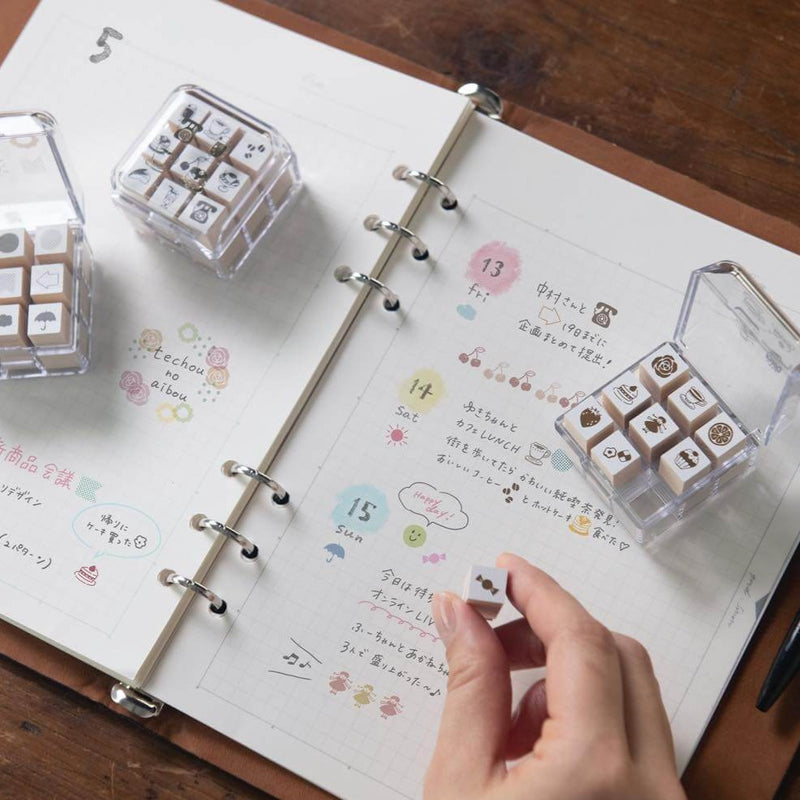 5
techou
no
aibou
新商品会議
デザイン
(2パターン)
帰りに
ケーキ買った
13
fri
中村さんと
19日までに
企画まとめて提出!
14
Sat
ゆきちゃんと
カフェLUNCH
街を歩いてたら かわいい純喫茶発見!
おいしいコーヒー と ホットケーキ 食べた♡
15
Sun
Happy
day!
今日は待ち
オンラインLIV
ふーちゃんとあかねちゃ
3人で盛り上がった〜♪